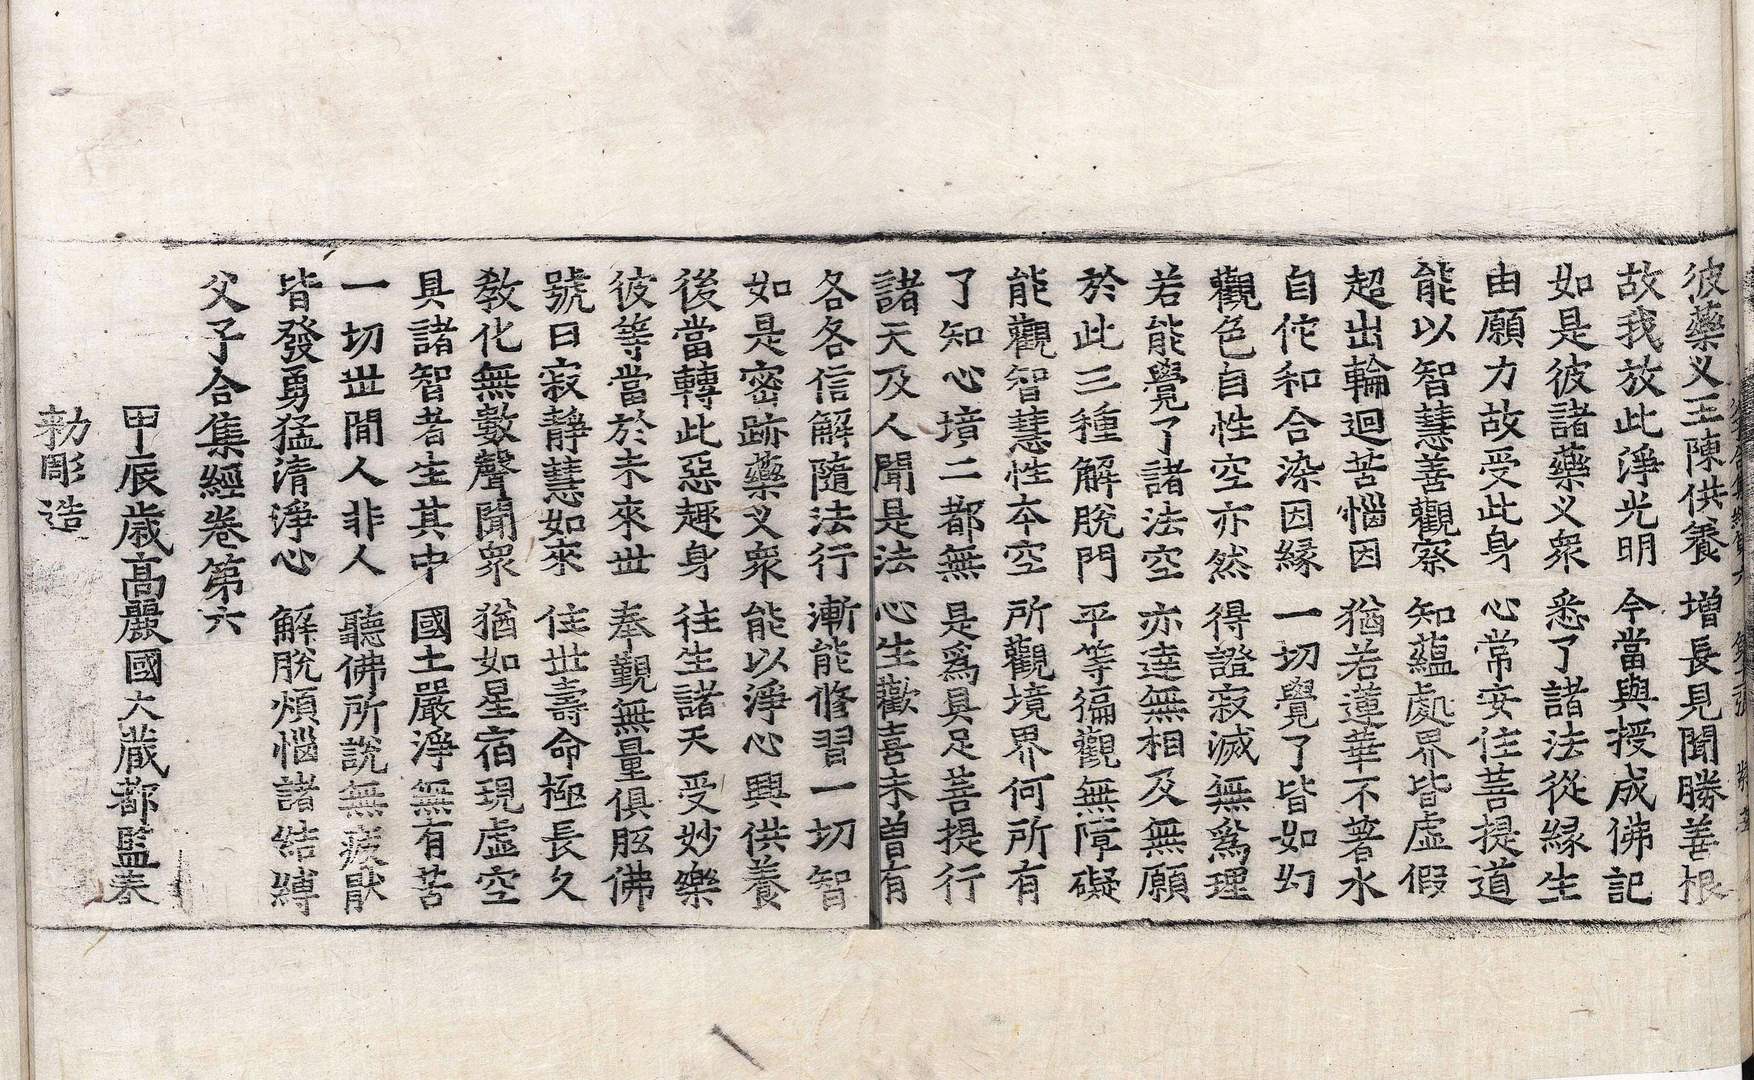 彼藥叉王陳供養 增長見聞勝善根
故我放此淨光明 今當與授成佛記
如是彼諸藥叉衆 悉了諸法從緣生
由願力故受此身 心常安住菩提道
能以智慧善觀察 知蘊處界皆虛假
超出輪迴苦惱因 猶若蓮華不著水
自佗和合染因緣 一切覺了皆如幻
觀色自性空亦然 得證寂滅無爲理
若能覺了諸法空 亦達無相及無願
於此三種解脫門 平等徧觀無障礙
能觀智慧性本空 所觀境界何所有
了知心境二都無 是爲具足菩提行
諸天及人聞是法 心生歡喜未曾有
各各信解隨法行 漸能修習一切智
如是密跡藥叉衆 能以淨心興供養
後當轉此惡趣身 往生諸天受妙樂
彼等當於未來世 奉覲無量俱胝佛
號曰寂靜慧如來 住世壽命極長久
敎化無數聲聞衆 猶如星宿現虛空
具諸智者生其中 國土嚴淨無有苦
一切世閒人非人 聽佛所說無疲猒
皆發勇猛清淨心 解脫煩惱諸結縛
父子合集經卷第六
甲辰歲高麗國大藏都監奉
勅彫造